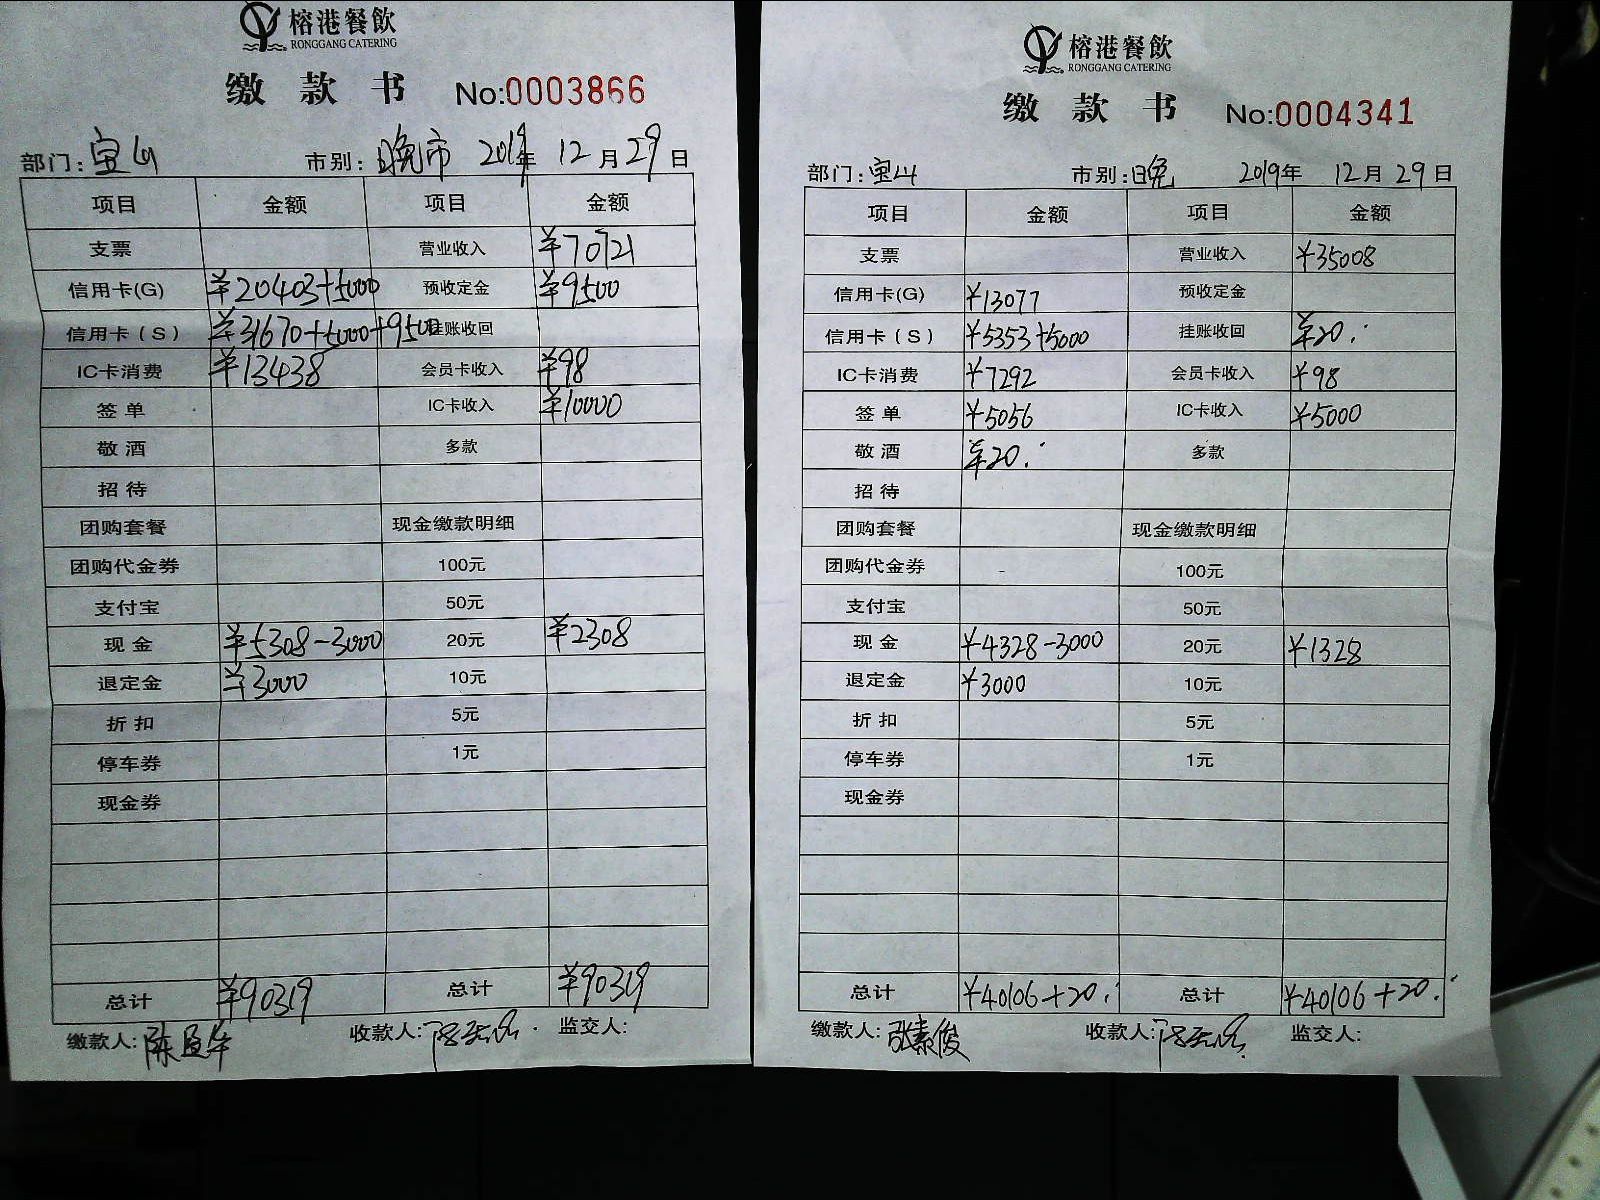 榕港餐飲
RONGGANG CATERING
缴款书 No:0003866
部门: 宝山 市别: 晚市 2019年 12月29日
项目 金额 项目 金额
支票 营业收入 ¥70721
信用卡(G) ¥20403+5000 预收定金 ¥9500
信用卡(S) ¥31670+5000+9500 挂账收回
IC卡消费 ¥13438 会员卡收入 ¥98
签单 IC卡收入 ¥10000
敬酒 多款
招待
团购套餐 现金缴款明细
团购代金券 100元
支付宝 50元
现金 ¥5308-3000 20元 ¥2308
退定金 ¥3000 10元
折扣 5元
停车券 1元
现金券
总计 ¥90319 总计 ¥90319
缴款人: 收款人: 监交人:
榕港餐飲
RONGGANG CATERING
缴款书 No:0004341
部门: 宝山 市别: 晚 2019年 12月29日
项目 金额 项目 金额
支票 营业收入 ¥35008
信用卡(G) ¥13077 预收定金
信用卡(S) ¥5353+5000 挂账收回 ¥20.
IC卡消费 ¥7292 会员卡收入 ¥98
签单 ¥5056 IC卡收入 ¥5000
敬酒 ¥20. 多款
招待
团购套餐 现金缴款明细
团购代金券 100元
支付宝 50元
现金 ¥4328-3000 20元 ¥1328
退定金 ¥3000 10元
折扣 5元
停车券 1元
现金券
总计 ¥40106+20. 总计 ¥40106+20.
缴款人: 张素俊 收款人: 监交人: